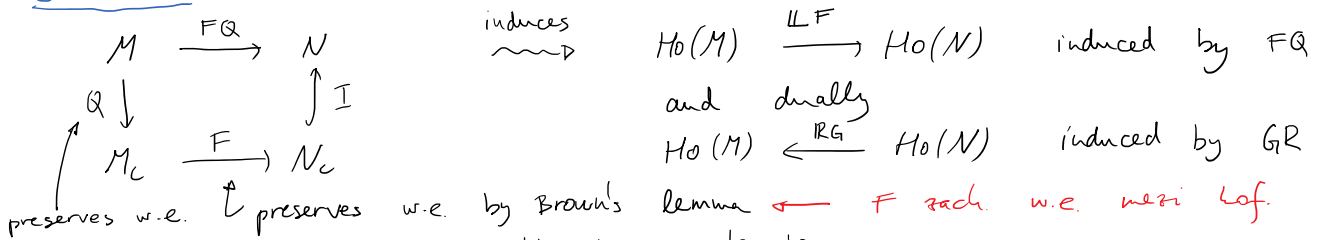 M FQ N induces Ho(M) 𝕃F Ho(N) induced by FQ
Q I and dually
M_c F N_c Ho(M) ℝG Ho(N) induced by GR
preserves w.e. preserves w.e. by Brown's lemma F zach. w.e. mezi kof.